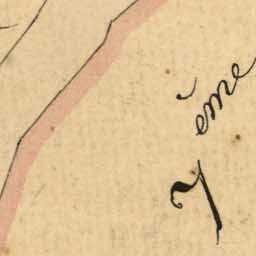 7 ème